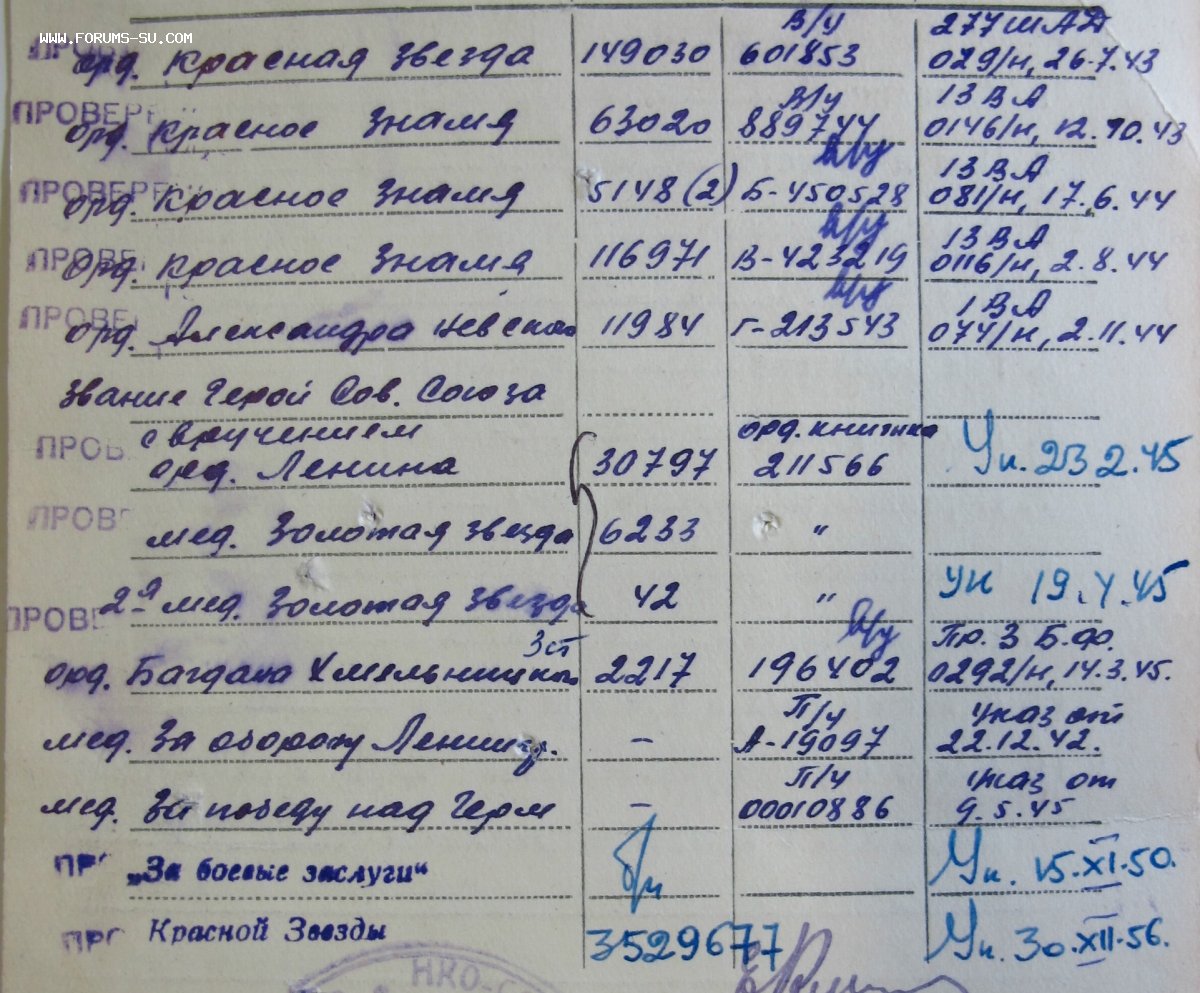 www.forums-su.com
В/у 277 ШАД
орд. Красная Звезда 149030 601853 029/н, 26.7.43
ПРОВЕРЕ В/у 13 ВА
орд. Красное Знамя 63020 889744 0146/н, 12.10.43
ПРОВЕРЕ в/у 13 ВА
орд. Красное Знамя 5148 (2) Б-450528 081/н, 17.6.44
ПРОВЕ в/у 13 ВА
орд. Красное Знамя 116971 В-423219 0116/н, 2.8.44
ПРОВЕ в/у 1 ВА
орд. Александра Невского 11984 Г-213543 074/н, 2.11.44
звание Герой Сов. Союза
ПРОВ с вручением орд. книжка
орд. Ленина 30797 211566 Ук. 23 2.45
ПРОВ
мед. Золотая звезда 6233 "
ПРОВЕ 2-я мед. Золотая Звезда 42 " УК 19.4.45
3 ст в/у Пр. 3 Б.Ф.
орд. Багдана Хмельницкого 2217 196402 0292/н, 14.3.45.
П/у Указ от
мед. За оборону Ленингр. - А-19097 22.12.42.
П/у Указ от
мед. За победу над Герм - 00010886 9.5.45
ПР „За боевые заслуги“ б/н Ук. 15.XI.50.
ПРО Красной Звезды 3529677 Ук. 30.XII.56.
НКО-С